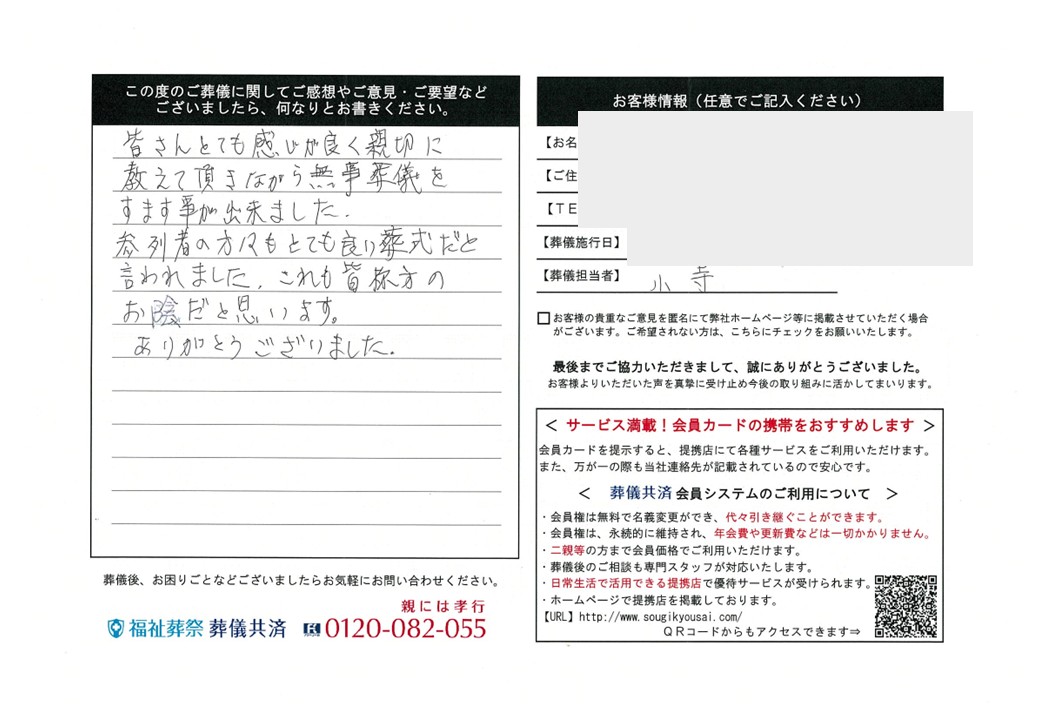 この度のご葬儀に関してご感想やご意見・ご要望など
ございましたら、何なりとお書きください。
皆さんとても感じが良く親切に
教えて頂きながら無事葬儀を
すます事が出来ました.
参列者の方々もとても良い葬式だと
言われました. これも皆称方の
お陰だと思います。
ありがとうございました.
葬儀後、お困りごとなどございましたらお気軽にお問い合わせください。
親には孝行
福祉葬祭 葬儀共済 0120-082-055
お客様情報（任意でご記入ください）
【お名
【ご住
【ＴＥ
【葬儀施行日】
【葬儀担当者】 小寺
お客様の貴重なご意見を匿名にて弊社ホームページ等に掲載させていただく場合
がございます。ご希望されない方は、こちらにチェックをお願いいたします。
最後までご協力いただきまして、誠にありがとうございました。
お客様よりいただいた声を真摯に受け止め今後の取り組みに活かしてまいります。
＜ サービス満載！会員カードの携帯をおすすめします ＞
会員カードを提示すると、提携店にて各種サービスをご利用いただけます。
また、万が一の際も当社連絡先が記載されているので安心です。
＜ 葬儀共済 会員システムのご利用について ＞
・会員権は無料で名義変更ができ、代々引き継ぐことができます。
・会員権は、永続的に維持され、年会費や更新費などは一切かかりません。
・二親等の方まで会員価格でご利用いただけます。
・葬儀後のご相談も専門スタッフが対応いたします。
・日常生活で活用できる提携店で優待サービスが受けられます。
・ホームページで提携店を掲載しております。
【URL】http://www.sougikyousai.com/
ＱＲコードからもアクセスできます⇒